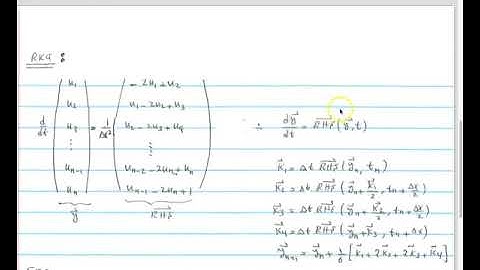 RK4 :
d/dt (u1, u2, u3, ⋮, un-1, un) = 1/Δx² (-2u1+u2, u1-2u2+u3, u2-2u3+u4, ⋮, un-2-2un-1+un, un-1-2un+1)
y⃗
RHS
∴ dy⃗/dt = RHS (y⃗, t)
k⃗1 = Δt RHS (y⃗n, tn)
k⃗2 = Δt RHS (y⃗n + k⃗1/2, tn + Δx/2)
k⃗3 = Δt RHS (y⃗n + k⃗2/2, tn + Δx/2)
k⃗4 = Δt RHS (y⃗n + k⃗3, tn + Δx)
y⃗n+1 = y⃗n + 1/6 [k⃗1 + 2k⃗2 + 2k⃗3 + k⃗4]